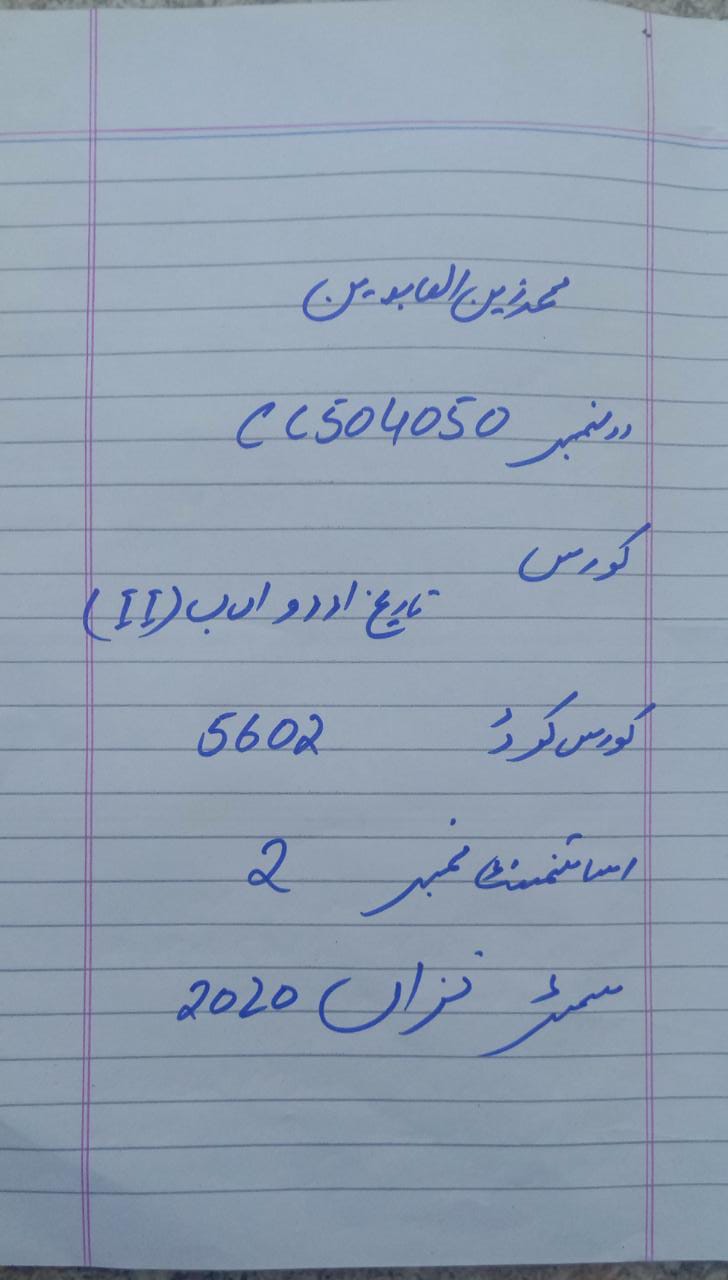 محمد زین العابدین
رولنمبر CC504050
کورس
تاریخ اردو ادب (II)
کورس کوڈ 5602
اسائنمنٹ نمبر 2
سمسٹر خزاں 2020